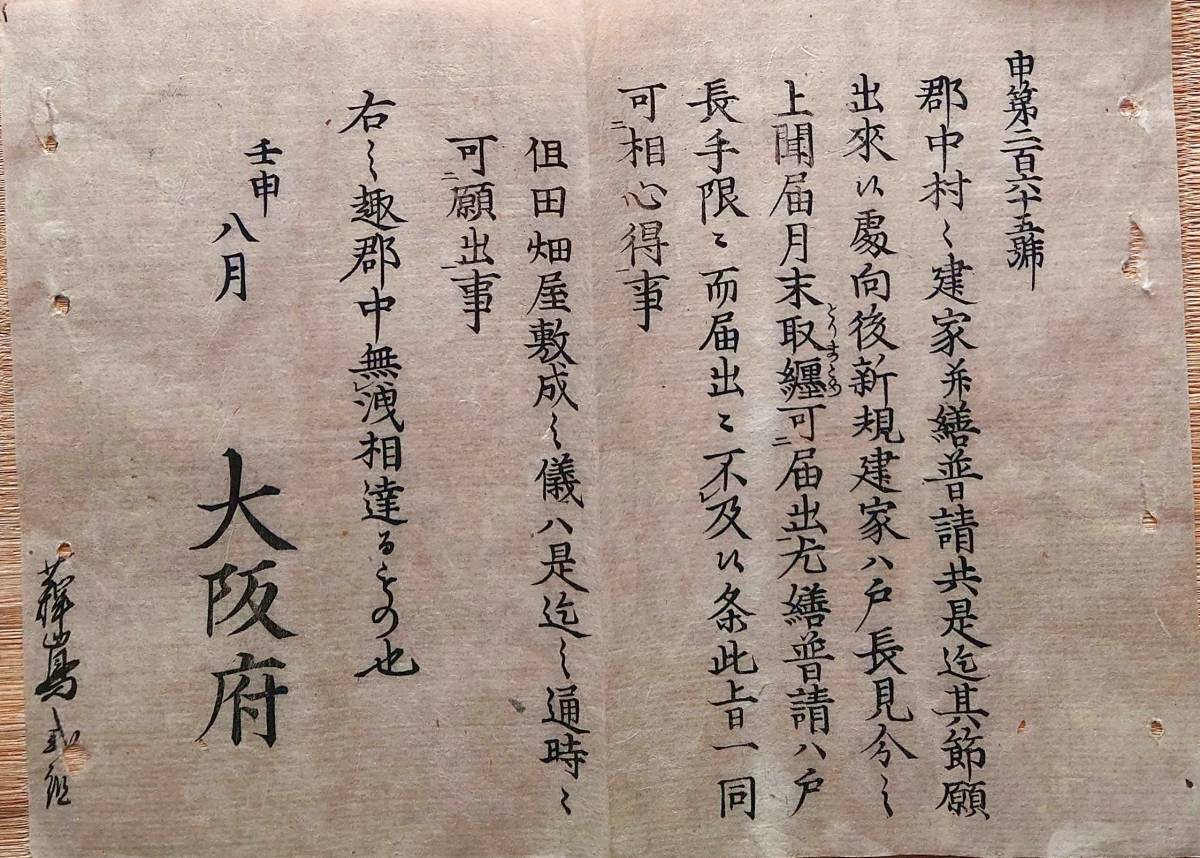 申第二百六十五號
郡中村々建家并繕普請共是迄其節願
出來候處向後新規建家ハ戸長見分之
上聞届月末取纏可届出尤繕普請ハ戸
とりまとめ
長手限ニ而届出ニ不及候条此旨一同
可相心得事
但田畑屋敷成之儀ハ是迄之通時々
可願出事
右之趣郡中無洩相達るもの也
壬申八月
大阪府